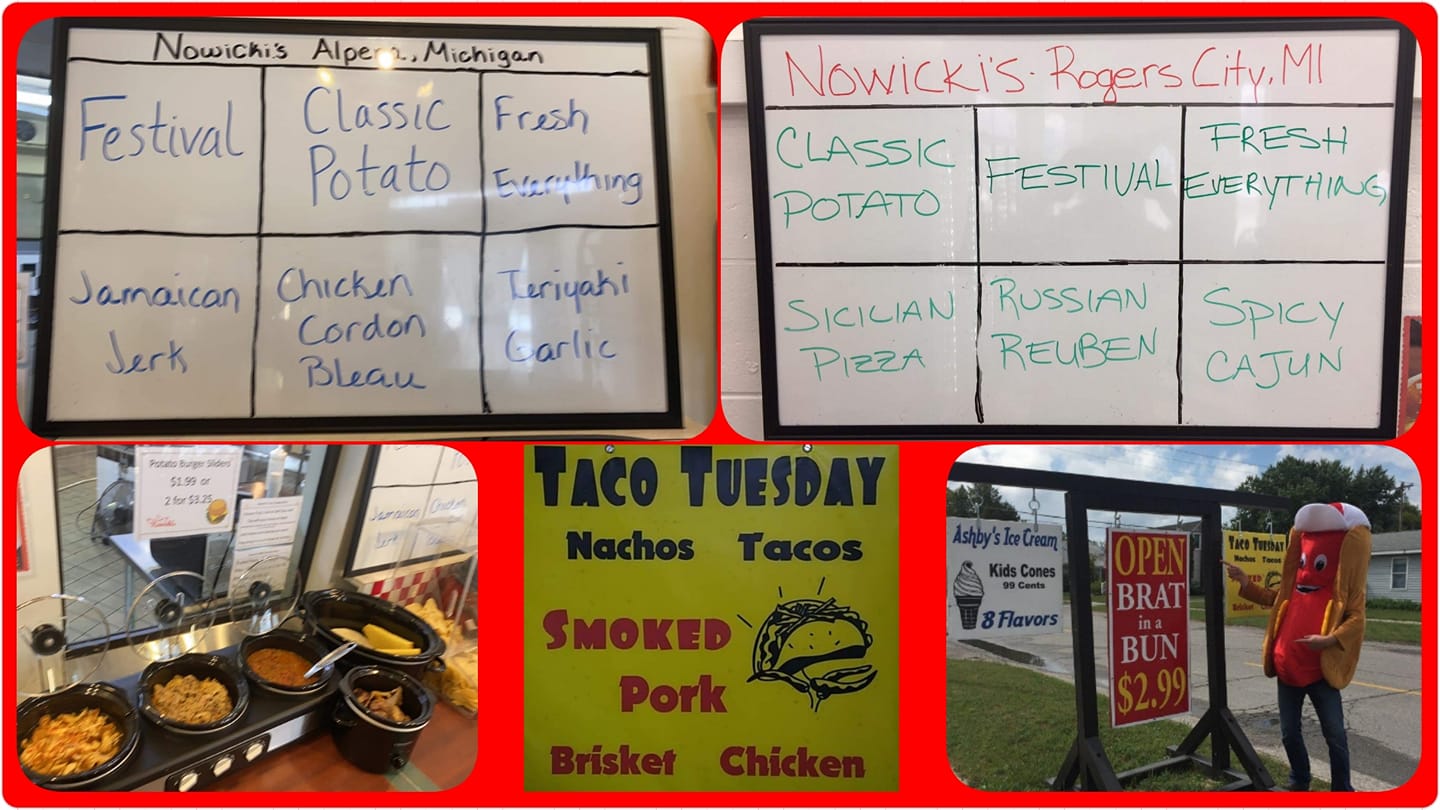 Nowicki's Alpena, Michigan
Festival
Classic
Potato
Fresh
Everything
Jamaican
Jerk
Chicken
Cordon
Bleau
Teriyaki
Garlic
NOWICKI'S. ROGERS CITY, MI
CLASSIC
POTATO
FESTIVAL
FRESH
EVERYTHING
SICILIAN
PIZZA
RUSSIAN
REUBEN
SPICY
CAJUN
Potato Burger Sliders
$1.99 or
2 for $3.25
Jamaican
Jerk
Chicken
TACO TUESDAY
Nachos Tacos
SMOKED
Pork
Brisket Chicken
Ashby's Ice Cream
Kids Cones
99 Cents
8 Flavors
OPEN
BRAT
in a
BUN
$2.99
TACO TUESDAY
Nachos Tacos